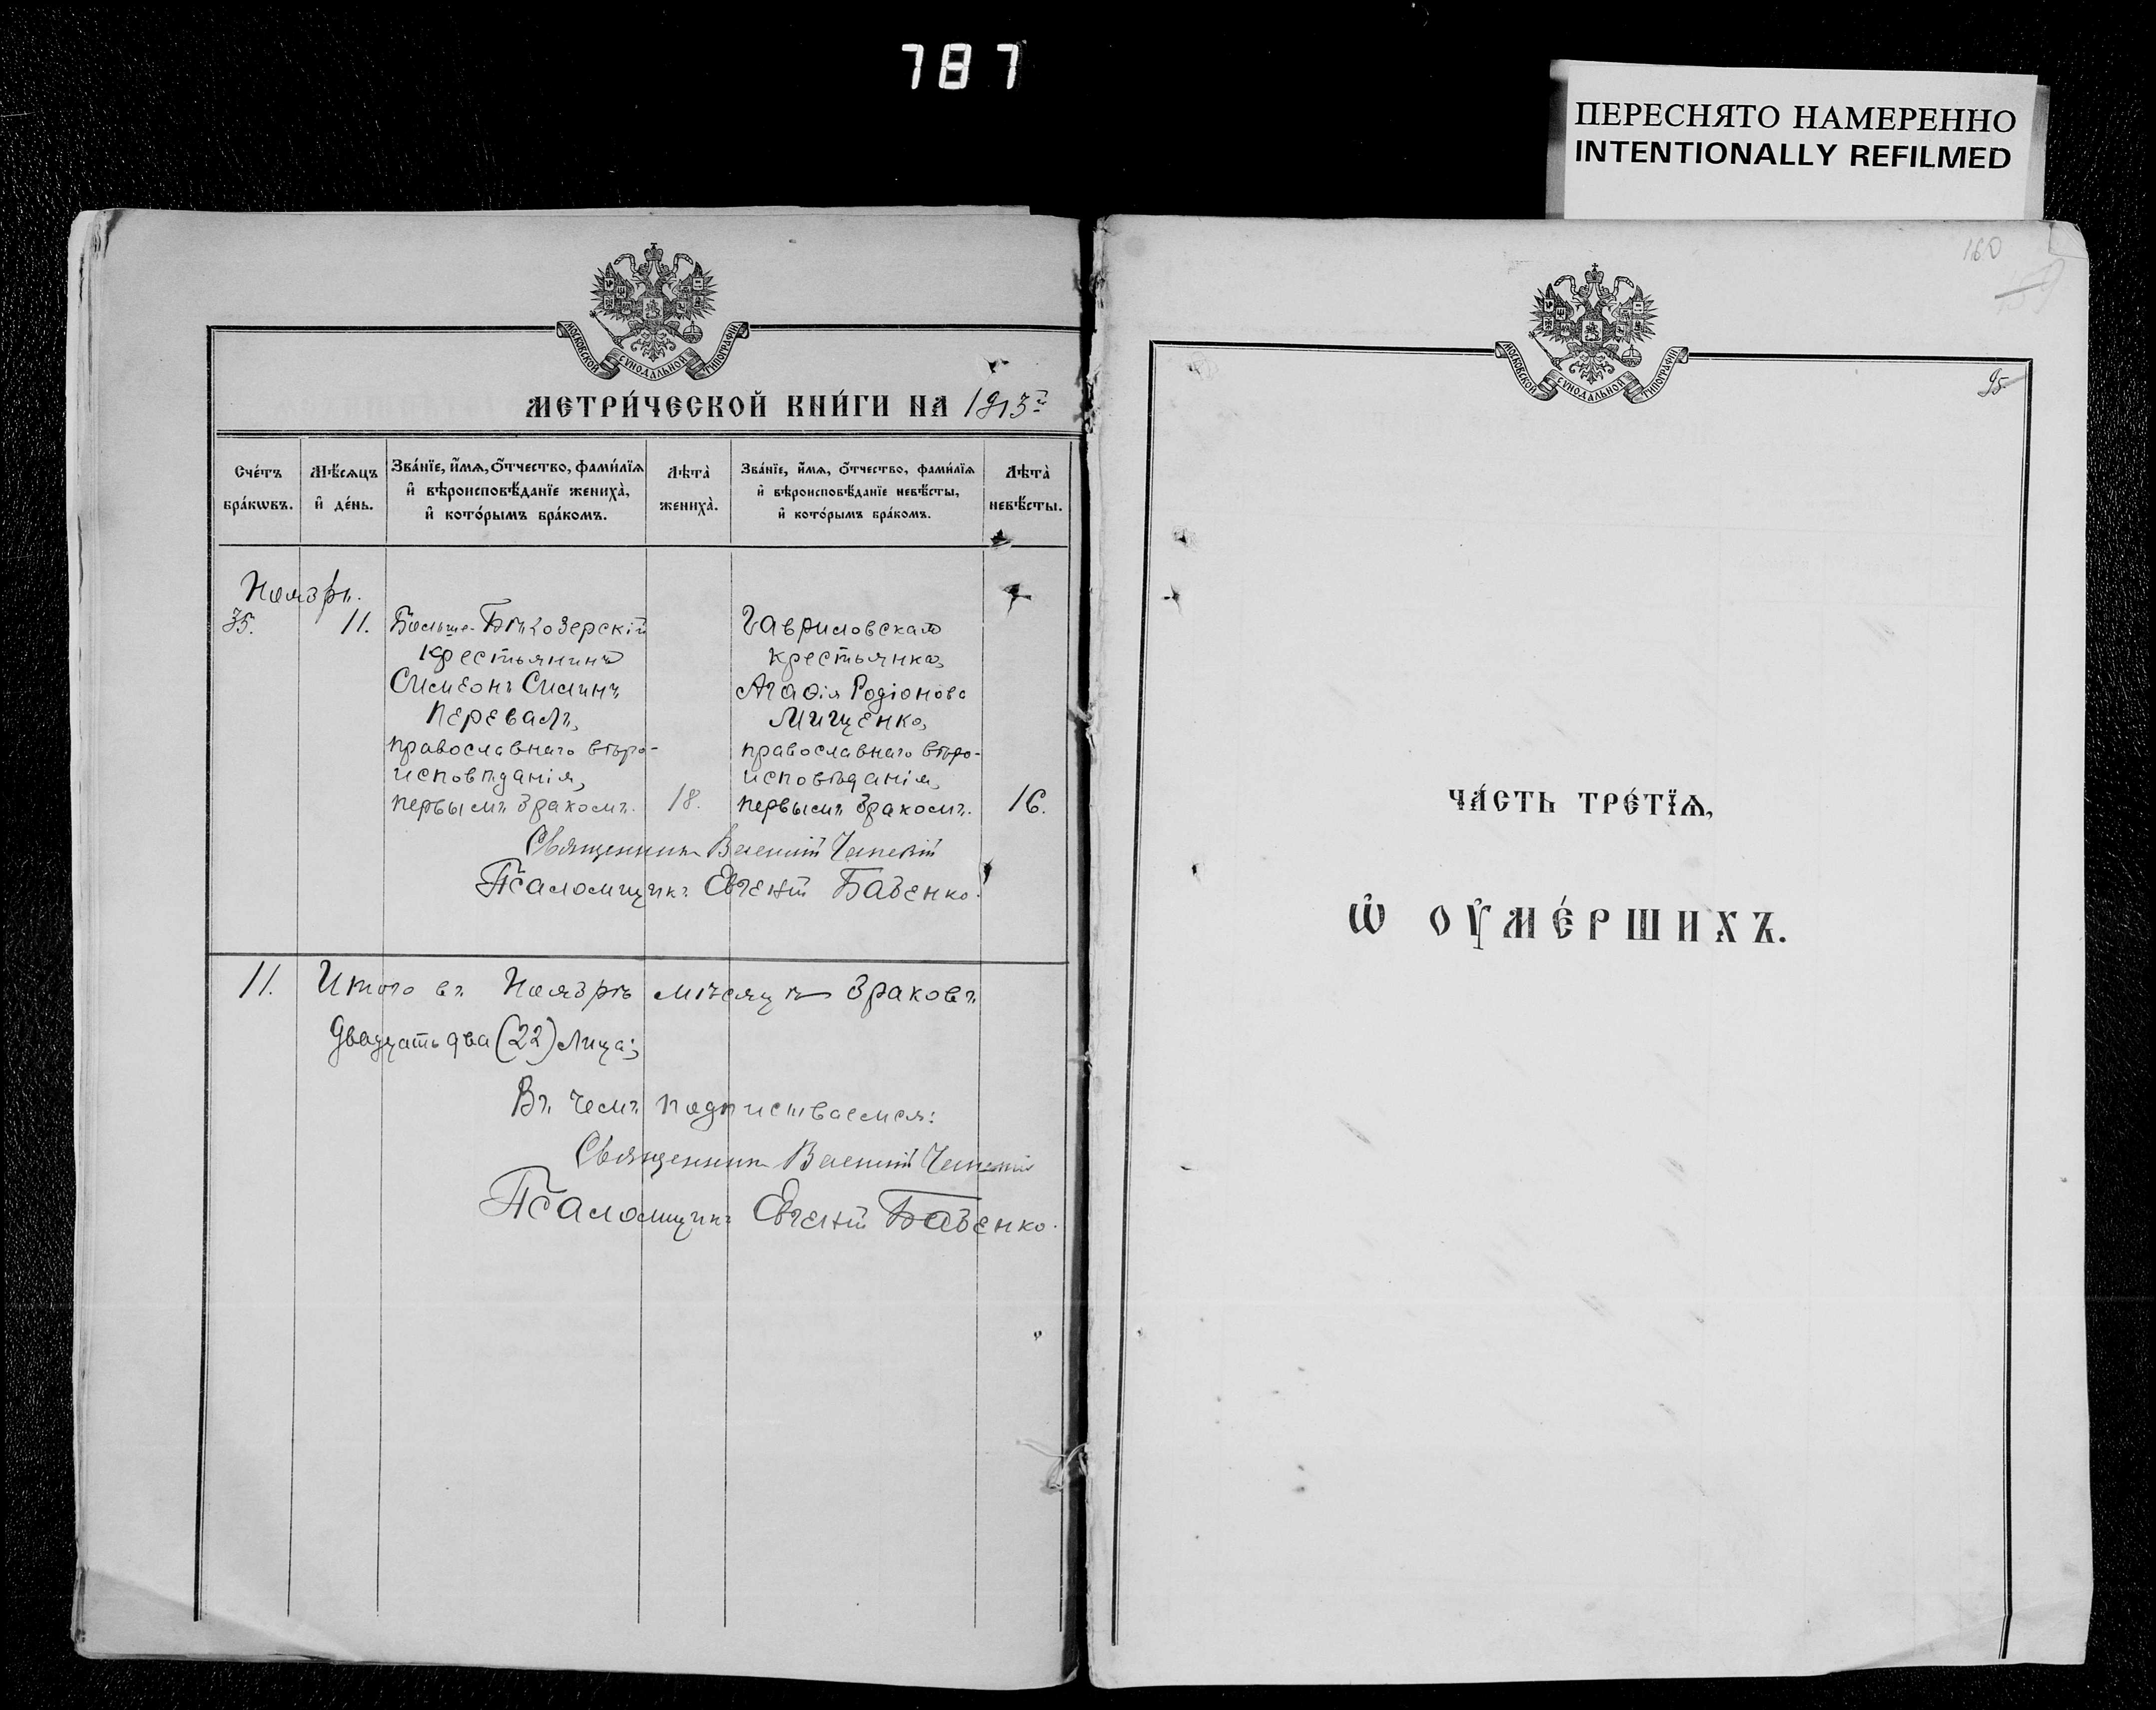 787
ПЕРЕСНЯТО НАМЕРЕННО
INTENTIONALLY REFILMED
МОСКОВСКОЙ СѴНОДАЛЬНОЙ ТИПОГРАФІИ
МЕТРИ́ЧЕСКОЙ КНИ́ГИ НА 1913й
Сче́тъ бра́кѡвъ.
Мѣ́сѧцъ и҆ де́нь.
Зва́нїе, и҆́мѧ, ѻ҆́тчество, фами́лїѧ и҆ вѣроисповѣ́данїе жениха̀, и҆ кото́рымъ бра́комъ.
Лѣта̀ жениха̀.
Зва́нїе, и҆́мѧ, ѻ҆́тчество, фами́лїѧ и҆ вѣроисповѣ́данїе невѣ́сты, и҆ кото́рымъ бра́комъ.
Лѣта̀ невѣ́сты.
Ноябрь.
35. 11. Больше-Бѣлозерскій
крестьянинъ
Симеонъ Симинъ
Перевалъ,
православнаго вѣро-
исповѣданія,
первымъ бракомъ. 18.
Гавриловская
крестьянка,
Агафія Родіонова
Мищенко,
православнаго вѣро-
исповѣданія,
первымъ бракомъ. 16.
Священникъ Василій
Псаломщикъ Евгеній Бабенко.
11. Итого въ Ноябрѣ мѣсяцѣ браковъ
двадцать два (22) лица;
Въ чемъ подписываемся:
Священникъ Василій
Псаломщикъ Евгеній Бабенко.
160
95
МОСКОВСКОЙ СѴНОДАЛЬНОЙ ТИПОГРАФІИ
ЧА́СТЬ ТРЕ́ТЇѦ,
Ѡ҆ ОУ҆МЕ́РШИХЪ.